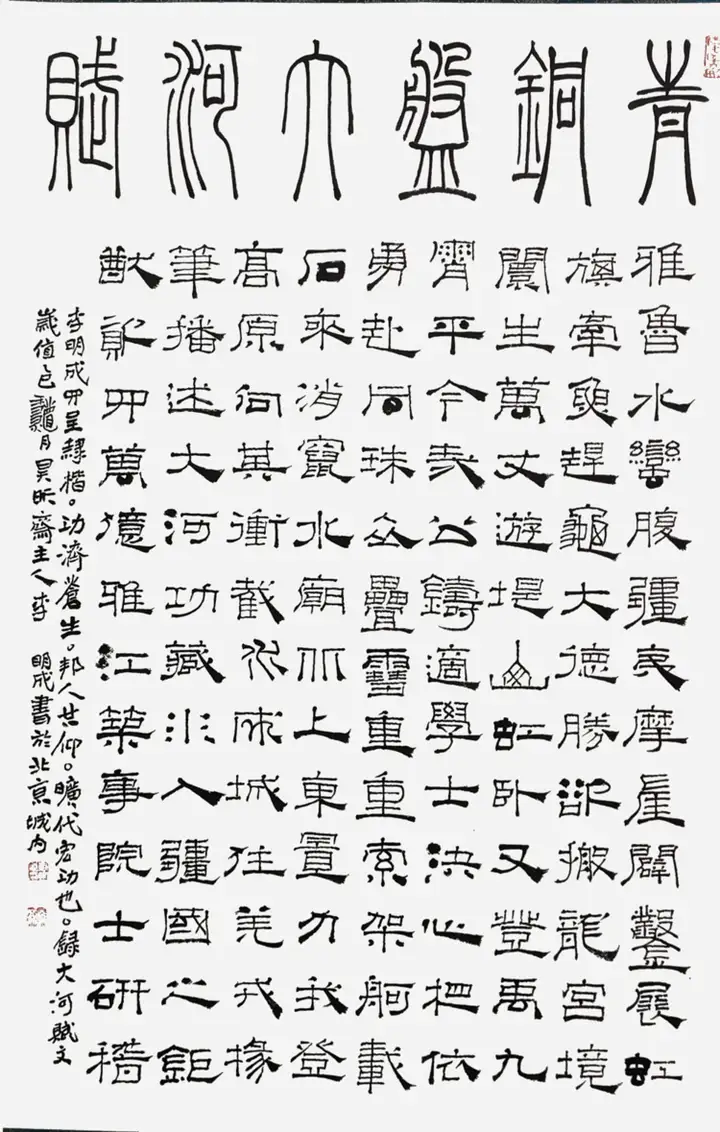 青銅盤大河賦
雅魯水蠻腹疆夷摩崖闢鑿展虹
旗牽魚趕龜大德勝卻搬龍宮境
生萬丈遊堤山虹臥又豐禹九
齊平今公鑄適學士決心把依
勇赴同珠众疊靈重重索架舸載
石來消竄水廟上東置力我登
高原向其衝截水城往羌戎椽
筆播述大河功藏入疆國之鉅
猷四萬億雅江築事院士研稽
李明成四呈隸楷。功濟蒼生。邦人共仰。曠代宏功也。錄大河賦文
歲值巳月昊昕齋主人李明成書於北京城内